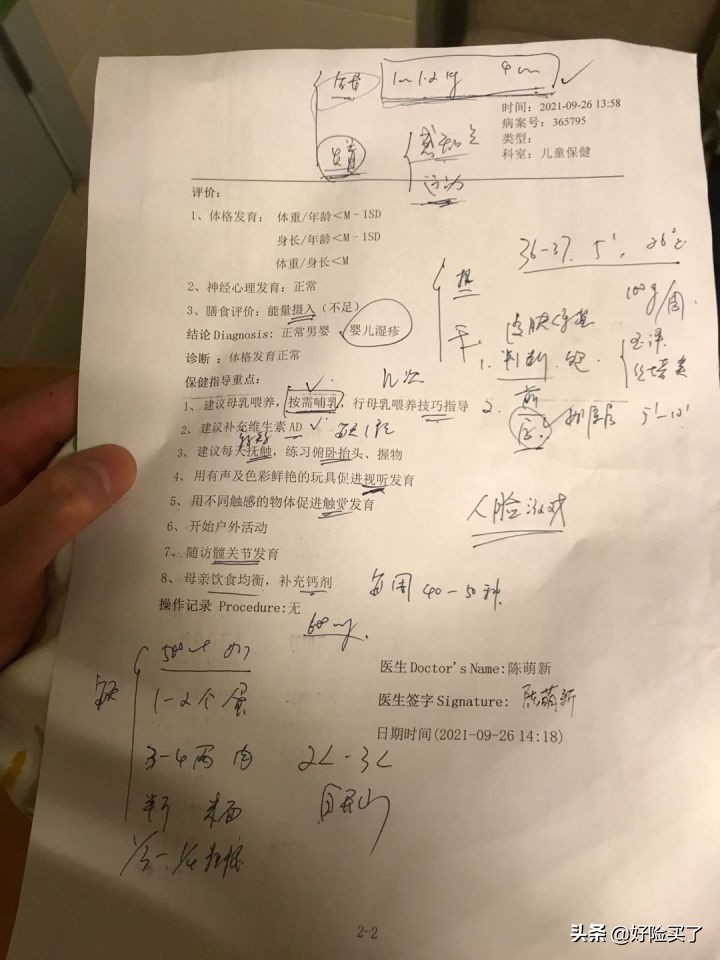 1m 1.2 kg 4cm
发育
感知
运动
时间：2021-09-26 13:58
病案号：365795
类型：
科室：儿童保健
评价：
1、体格发育： 体重/年龄<M-1SD
身长/年龄<M-1SD
体重/身长<M
2、神经心理发育：正常
3、膳食评价：能量摄入（不足）
结论Diagnosis: 正常男婴 、婴儿湿疹
诊断 ：体格发育正常
保健指导重点：
1、建议母乳喂养，按需哺乳，行母乳喂养技巧指导
2、建议补充维生素 AD
3、建议每天抚触，练习俯卧抬头、握物
4、用有声及色彩鲜艳的玩具促进视听发育
5、用不同触感的物体促进触觉发育
6、开始户外活动
7、随访髋关节发育
8、母亲饮食均衡，补充钙剂
操作记录 Procedure:无
36-37. 5' , 26℃
100g/周.
1. 判断
2. 前
后
5'-10'
人脸游戏
每周 40-50种
600mg
500ml 奶
1-2个蛋
3-4两肉
半斤 米面
2L-3L
医生Doctor's Name:陈萌新
医生签字Signature: 陈萌新
日期时间(2021-09-26 14:18)
2-2
头条 @好险买了